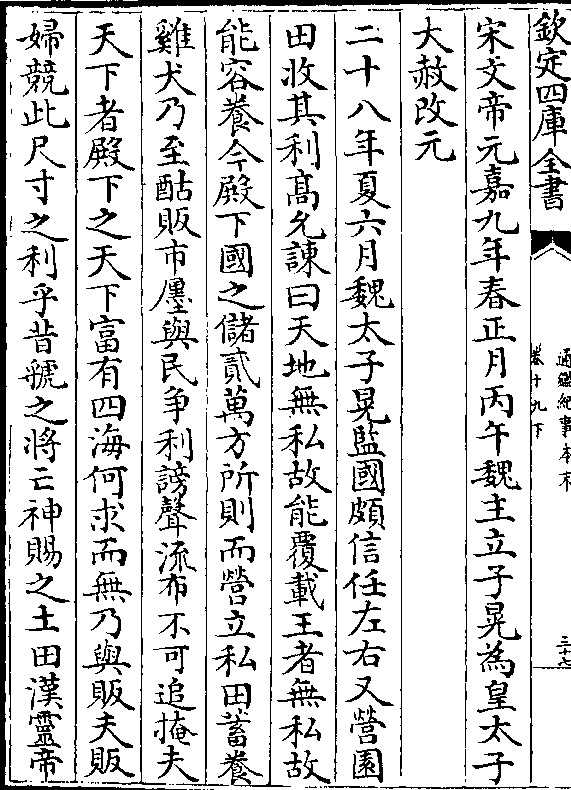 欽定四庫全書
通鑑紀事本末
卷十九下
三十七
宋文帝元嘉九年春正月丙午魏主立子晃為皇太子
大赦改元
二十八年夏六月魏太子晃監國頗信任左右又營園
田收其利高允諫曰天地無私故能覆載王者無私故
能容養今殿下國之儲貳萬方所則而營立私田蓄養
雞犬乃至酤販市㕓與民争利謗聲流布不可追掩夫
天下者殿下之天下富有四海何求而無乃與販夫販
婦競此尺寸之利乎昔虢之將亡神賜之土田漢靈帝